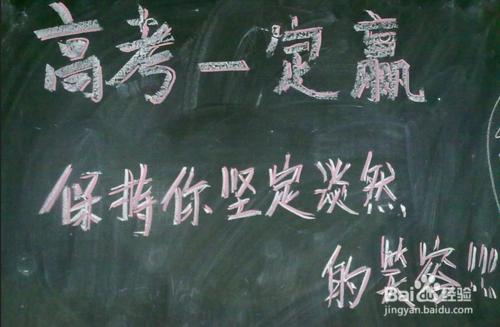 高考一定赢
保持你坚定淡然
的笑容!!!
Bai 经验
jingyan.baidu.com